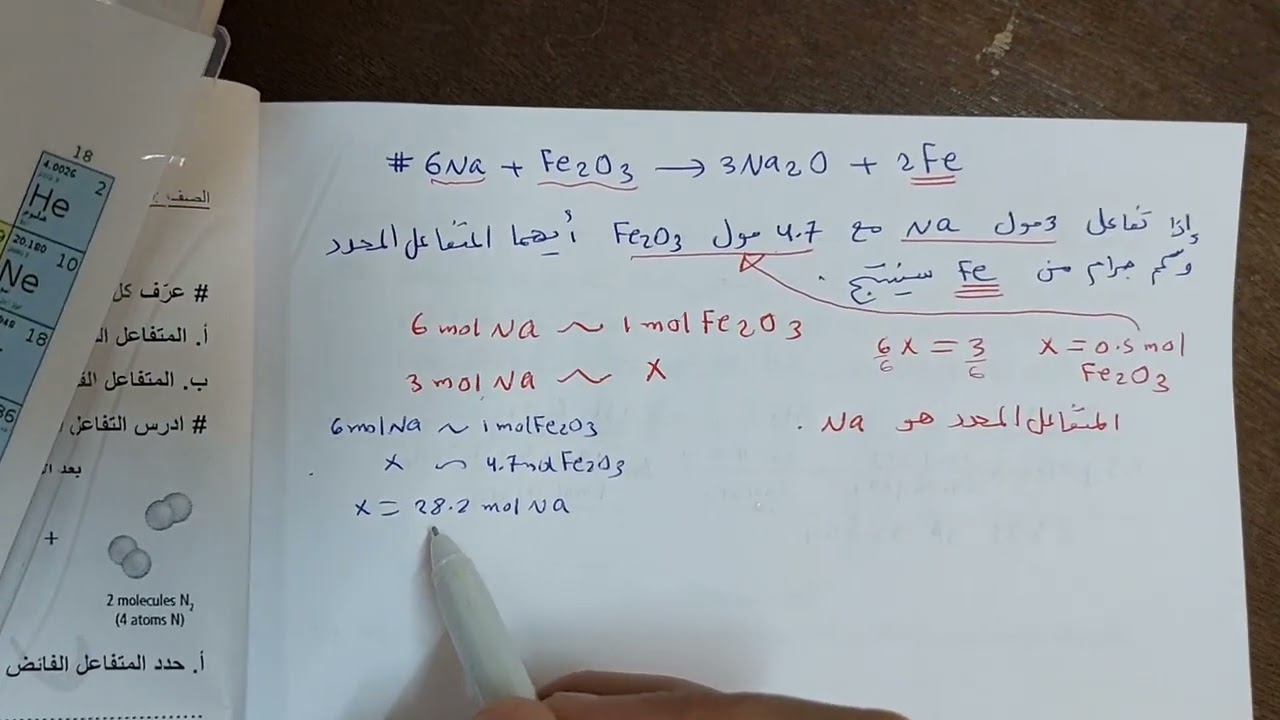 # 6Na + Fe2O3 → 3Na2O + 2Fe
إذا تفاعل 3 مول Na مع 4.7 مول Fe2O3 أيهما المتفاعل المحدد
وكم جرام من Fe سينتج .
6 mol Na ~ 1 mol Fe2O3
3 mol Na ~ X
6/6 X = 3/6
X = 0.5 mol
Fe2O3
المتفاعل المحدد هو Na .
6 mol Na ~ 1 mol Fe2O3
X ~ 4.7 mol Fe2O3
X = 28.2 mol NA
18
4.0026
2
He
هيليوم
20.180
10
Ne
نيون
18
الصنف
# عرّف كل
أ. المتفاعل
ب. المتفاعل
# ادرس التفاعل
بعد
+
2 molecules N2
(4 atoms N)
أ. حدد المتفاعل الفائض